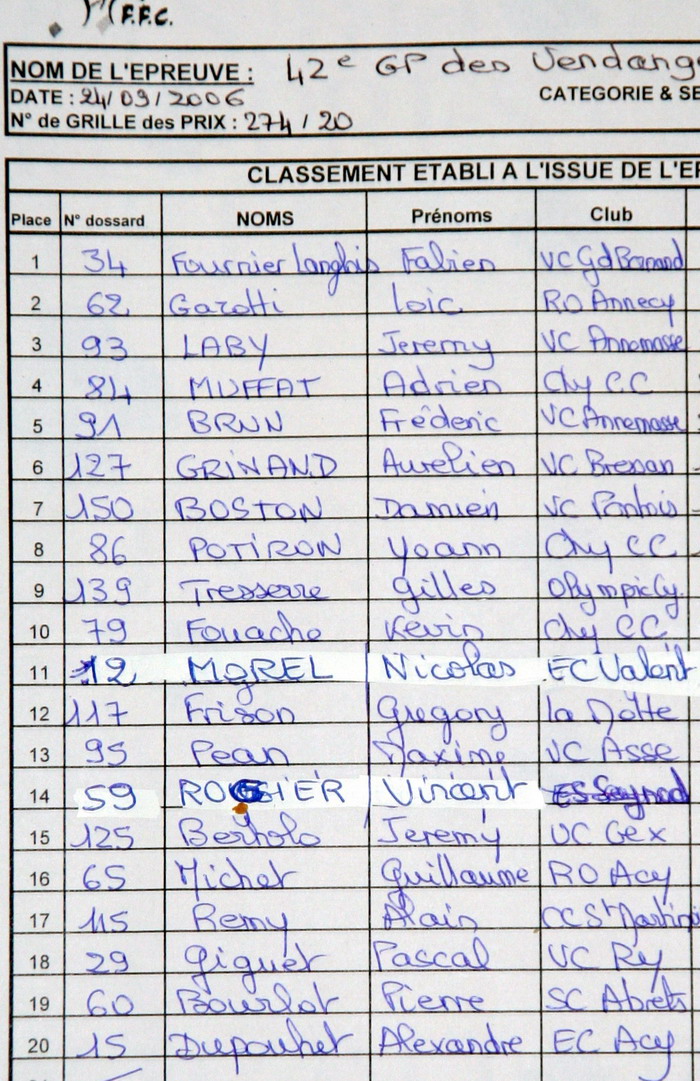 F.F.C.
NOM DE L'EPREUVE : 42e GP des Vendang
DATE : 24/09/2006 CATEGORIE & SE
N° de GRILLE des PRIX : 274 / 20
CLASSEMENT ETABLI A L'ISSUE DE L'EP
Place N° dossard NOMS Prénoms Club
1 34 Fournier Langlois Fabien VC Gd Bornand
2 62 Garotti Loic RO Annecy
3 93 LABY Jeremy VC Annemasse
4 84 MUFFAT Adrien Chy CC
5 91 BRUN Fréderic VC Annemasse
6 127 GRINAND Aurelien VC Bressan
7 150 BOSTON Damien VC Pontois
8 86 POTIRON Yoann Chy CC
9 139 Tresserre Gilles Olympic Cy
10 79 Fouache Kevin Chy CC
11 12 MOREL Nicolas EC Valent
12 117 Frison Gregory la Motte
13 95 Pean Maxime VC Asse
14 59 ROSSIER Vincent ES Seynod
15 125 Bertholo Jeremy UC Gex
16 65 Michet Guillaume RO Acy
17 115 Remy Alain CC St Martin
18 29 Giguet Pascal VC Ry
19 60 Bourlot Pierre SC Abrets
20 15 Alexandre EC Acy